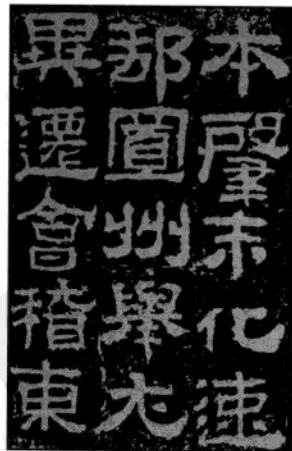 本肇末化速
郵置州舉尤
異遷會稽東